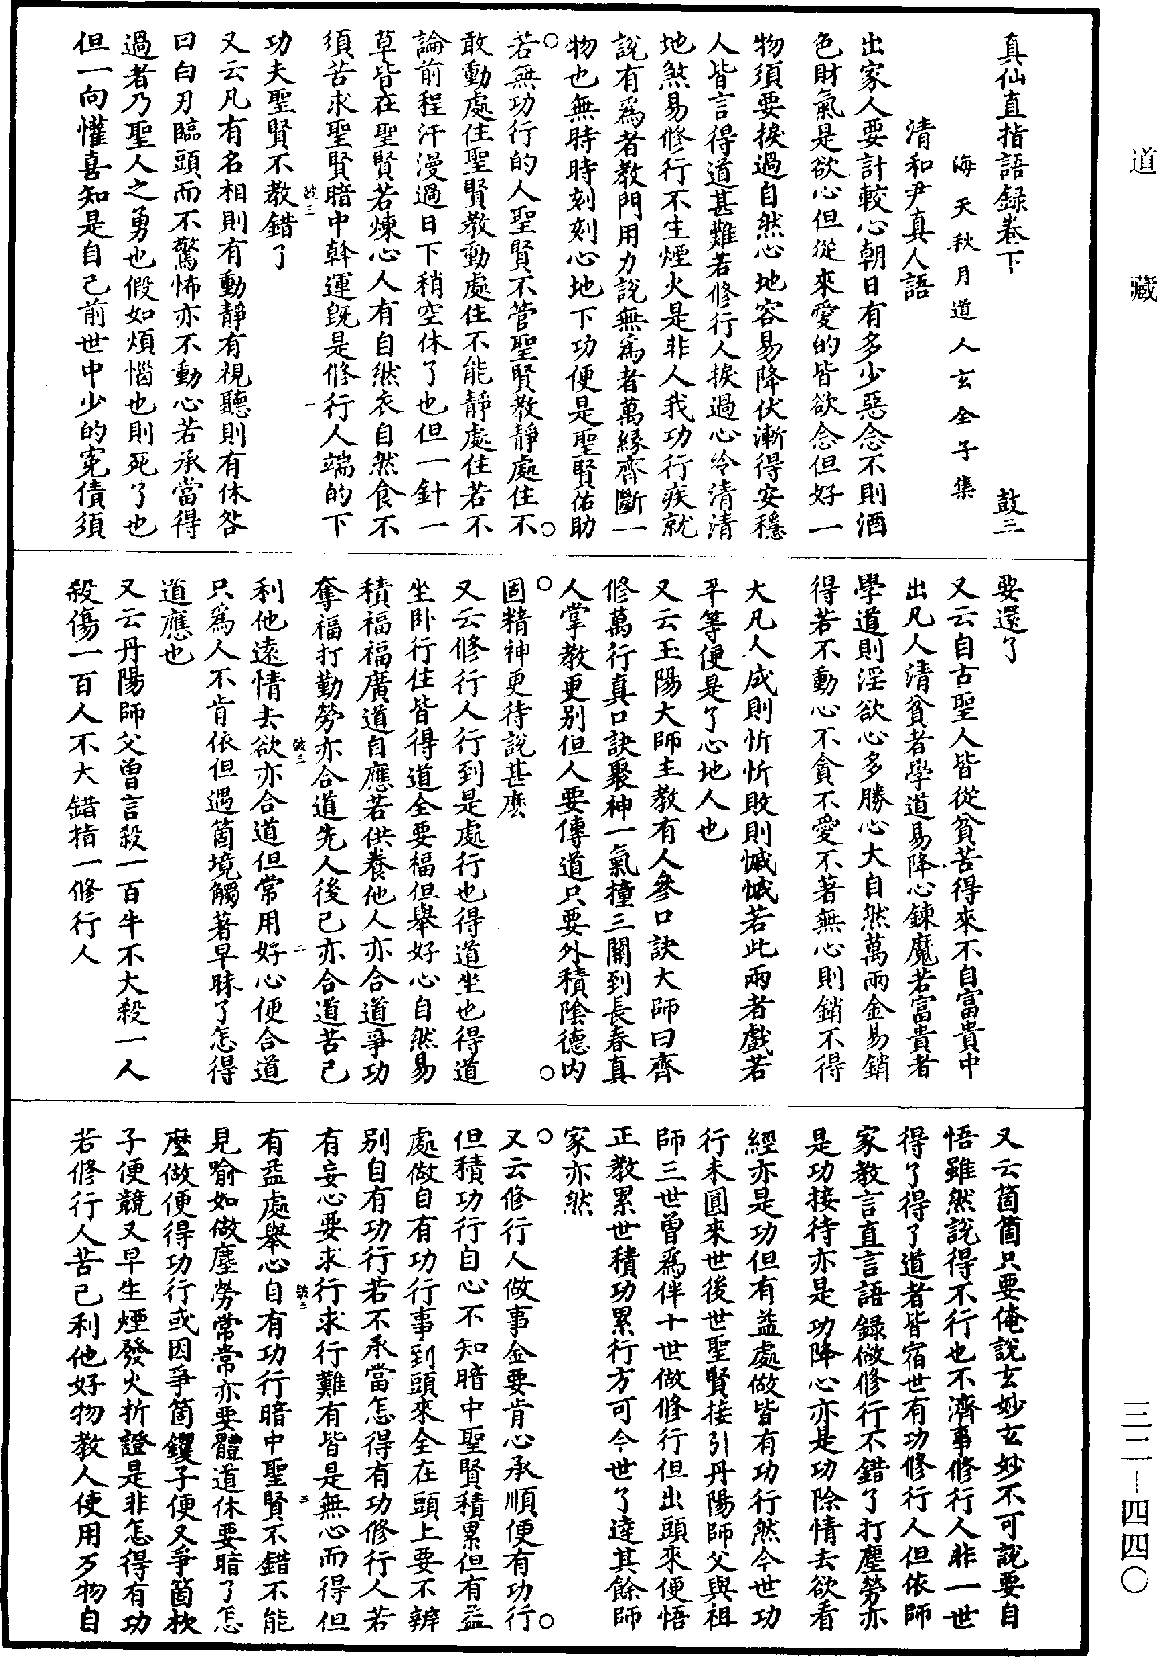 道藏
真仙直指語録卷下 鼓三
海天秋月道人玄全子集
清和尹真人語
出家人要計較心朝日有多少惡念不則酒
色財氣是欲心但從來愛的皆欲念但好一
物須要捩過自然心地容易降伏漸得安穩
人皆言得道甚難若修行人捩過心冷清清
地煞易修行不生煙火是非人我功行疾就
說有爲者教門用力說無爲者萬緣齊斷一
物也無時時刻刻心地下功便是聖賢佑助
若無功行的人聖賢不管聖賢教靜處住不
敢動處住聖賢教動處住不能靜處住若不
論前程汗漫過日下稍空休了也但一針一
草皆在聖賢若煉心人有自然衣自然食不
須苦求聖賢暗中幹運旣是修行人端的下
鼓三 一
功夫聖賢不教錯了
又云凡有名相則有動靜有視聽則有休咎
曰白刃臨頭而不驚怖亦不動心若承當得
過者乃聖人之勇也假如煩惱也則死了也
但一向懽喜知是自己前世中少的寃債須
要還了
又云自古聖人皆從貧苦得來不自富貴中
出凡人清貧者學道易降心鍊魔若富貴者
學道則淫欲心多勝心大自然萬兩金易銷
得若不動心不貪不愛不著無心則銷不得
大凡人成則忻忻敗則慽慽若此兩者戲若
平等便是了心地人也
又云玉陽大師主教有人參口訣大師曰齊
修萬行真口訣聚神一氣撞三關到長春真
人掌教更別但人要傳道只要外積陰德內
固精神更待說甚麽
又云修行人行到是處行也得道坐也得道
坐卧行住皆得道全要福但舉好心自然易
積福福廣道自應若供養他人亦合道爭功
奪福打勤勞亦合道先人後己亦合道苦己
鼓三 二
利他遠情去欲亦合道但常用好心便合道
只爲人不肯依但遇箇境觸著早昧了怎得
道應也
又云丹陽師父曾言殺一百牛不大殺一人
殺傷一百人不大錯指一修行人
又云箇箇只要俺說玄妙玄妙不可說要自
悟雖然說得不行也不濟事修行人非一世
得了得了道者皆宿世有功修行人但依師
家教言直言語録做修行不錯了打塵勞亦
是功接待亦是功降心亦是功除情去欲看
經亦是功但有益處做皆有功行然今世功
行未圓來世後世聖賢接引丹陽師父與祖
師三世曾爲伴十世做修行但出頭來便悟
正教累世積功累行方可今世了達其餘師
家亦然
又云修行人做事全要肯心承順便有功行
但積功行自心不知暗中聖賢積累但有益
處做自有功行事到頭來全在頭上要不辨
別自有功行若不承當怎得有功修行人若
有妄心要求行求行難有皆是無心而得但
鼓三 三
有益處舉心自有功行暗中聖賢不錯不能
見喻如做塵勞常常亦要體道休要暗了怎
麽做便得功行或因爭箇钁子便又爭箇杴
子便競又早生煙發火折證是非怎得有功
若修行人苦己利他好物教人使用歹物自
三二-四四〇